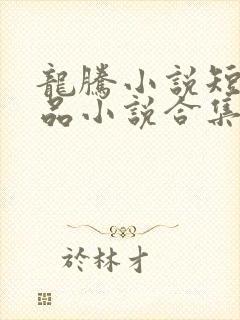 龍騰小說短
品小說合集
於林才